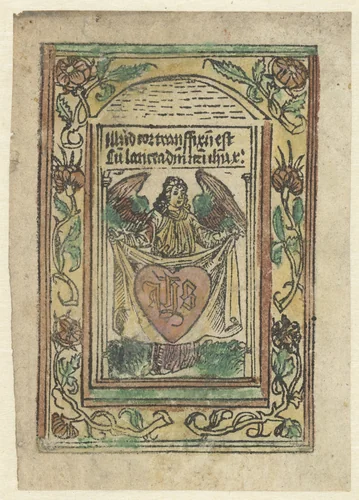 Illud cor transfixū est
Cū lancea dm̄ nr̄i ihū x:
ihs